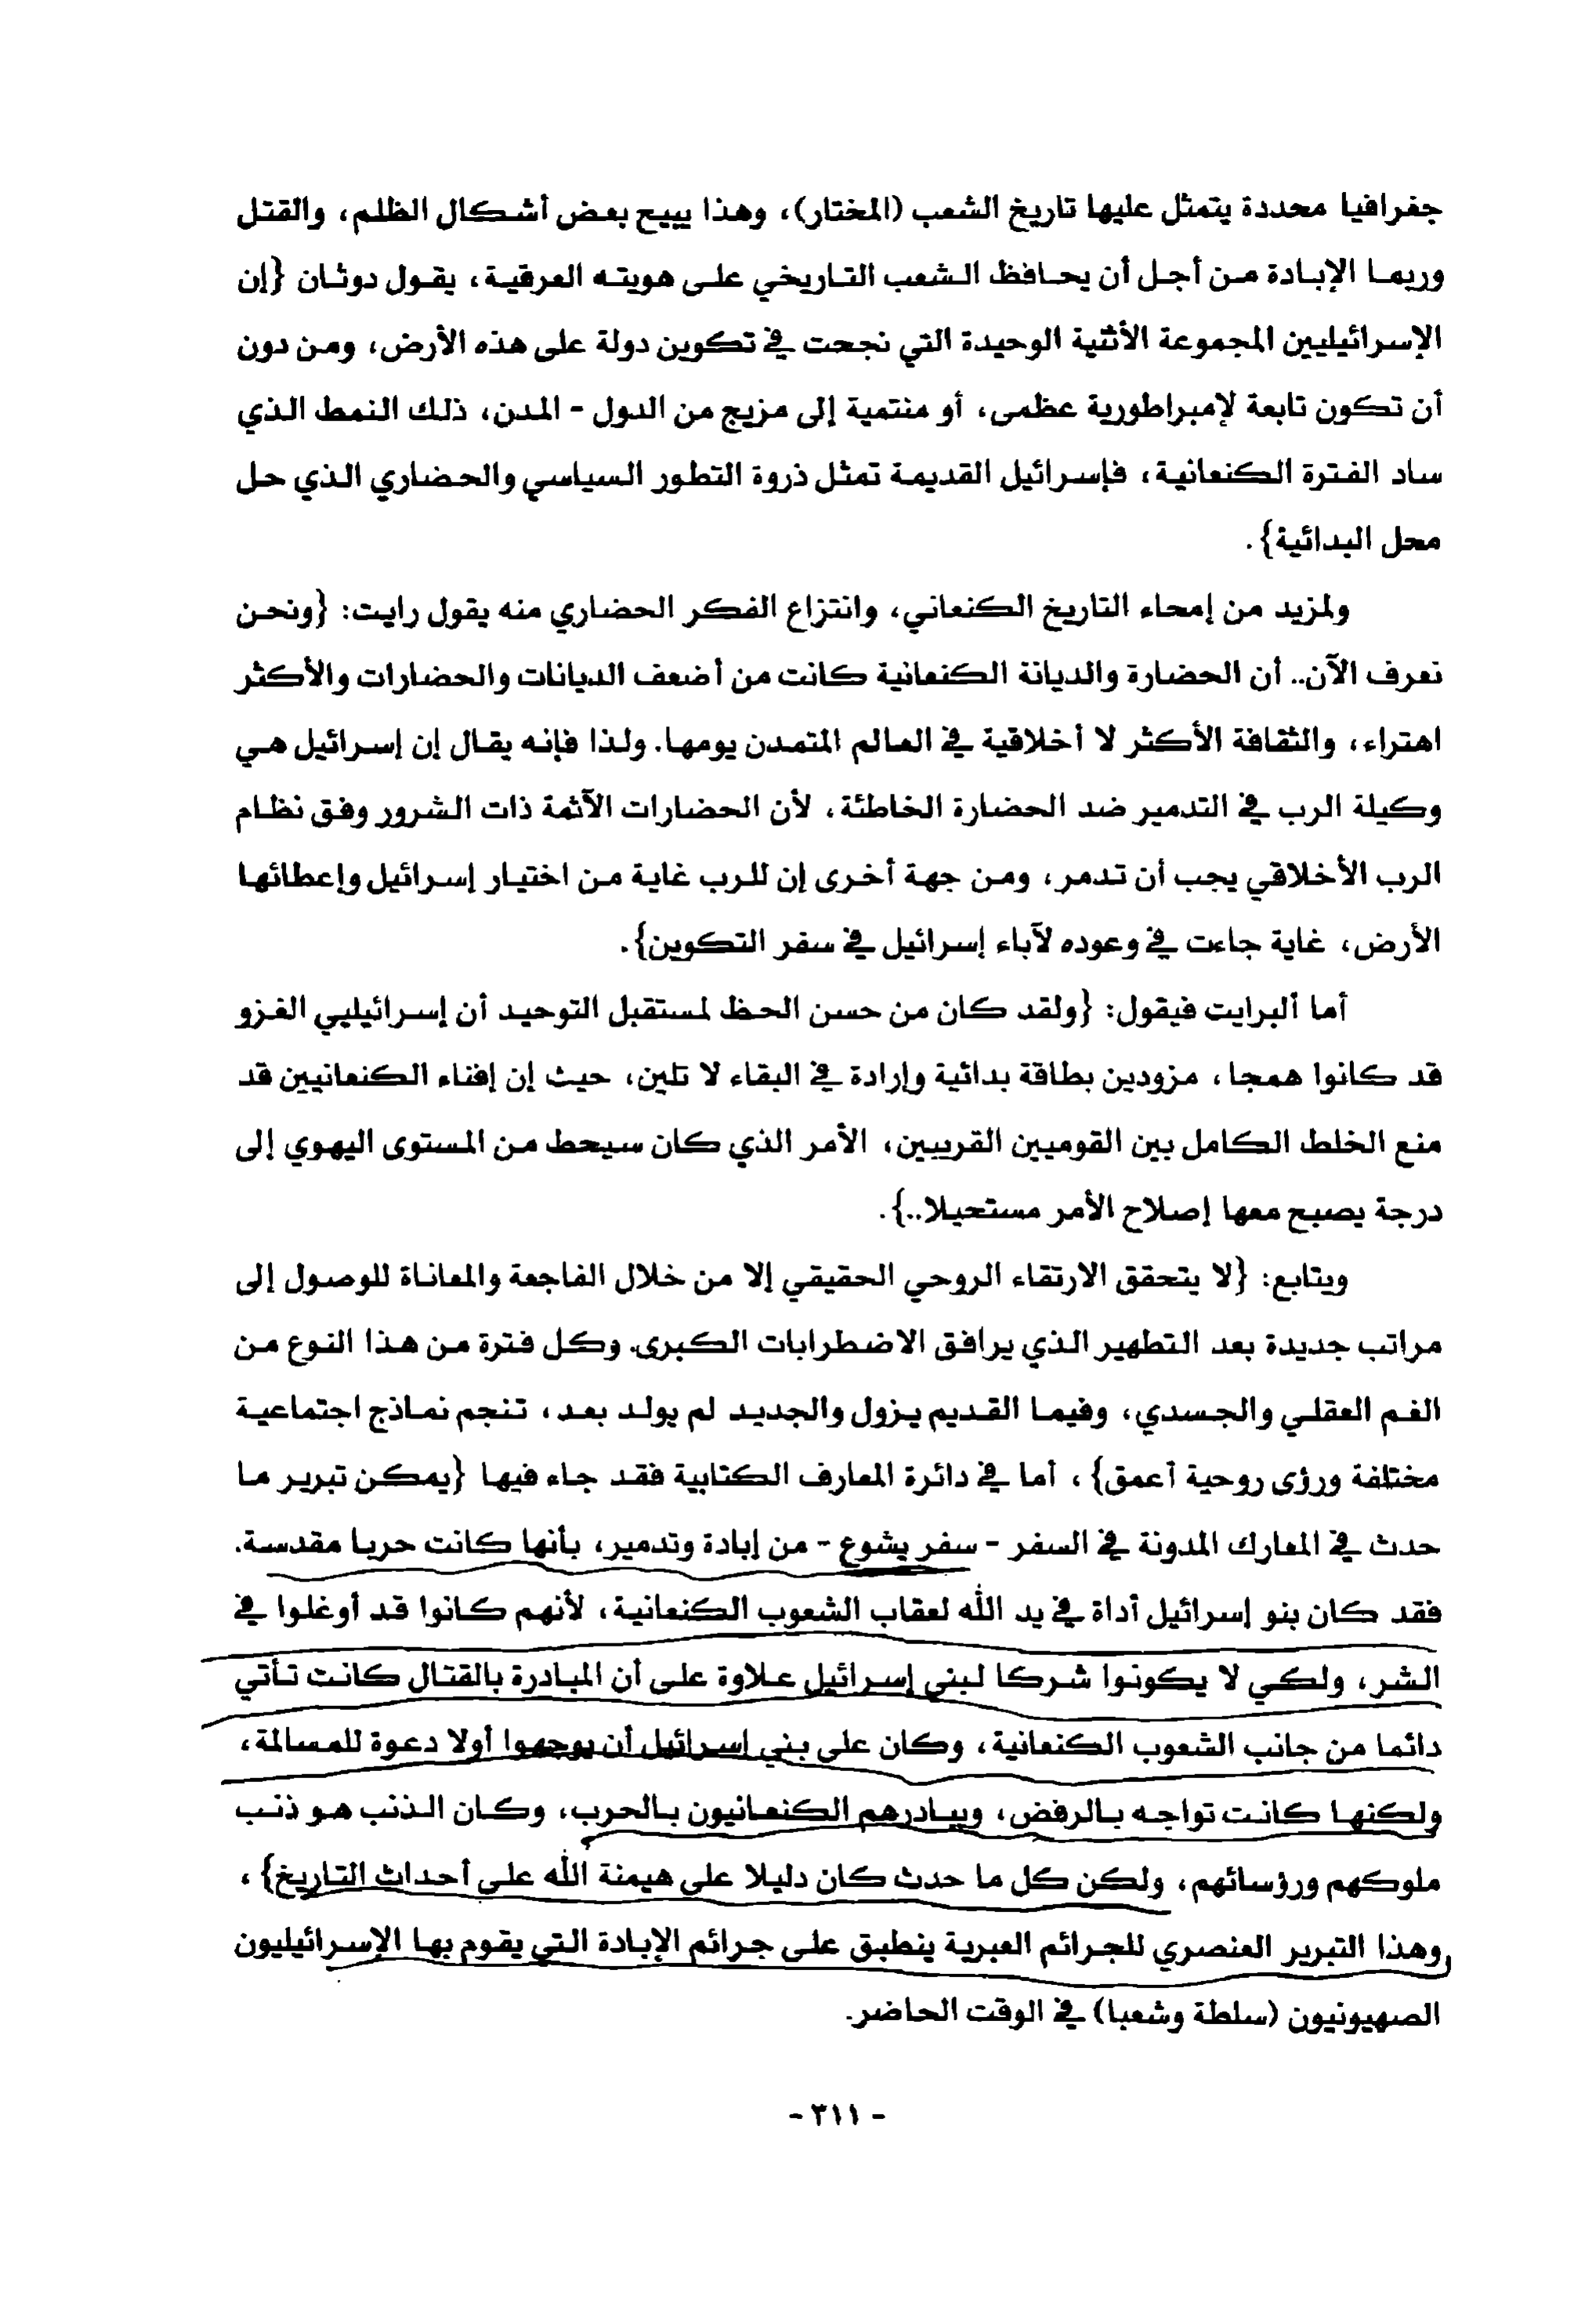 جغرافيا محددة يتمثل عليها تاريخ الشعب (المختار)، وهذا يبيح بعض أشكال الظلم، والقتل
وربما الإبادة من أجل أن يحافظ الشعب التاريخي على هويته العرقية، يقول دوثان {إن
الإسرائيليين المجموعة الأثنية الوحيدة التي نجحت في تكوين دولة على هذه الأرض، ومن دون
أن تكون تابعة لإمبراطورية عظمى، أو منتمية إلى مزيج من الدول - المدن، ذلك النمط الذي
ساد الفترة الكنعانية، فإسرائيل القديمة تمثل ذروة التطور السياسي والحضاري الذي حل
محل البدائية}.
ولمزيد من إمحاء التاريخ الكنعاني، وانتزاع الفكر الحضاري منه يقول رايت: {ونحن
نعرف الآن.. أن الحضارة والديانة الكنعانية كانت من أضعف الديانات والحضارات والأكثر
اهتراء، والثقافة الأكثر لا أخلاقية في العالم المتمدن يومها. ولذا فإنه يقال إن إسرائيل هي
وكيلة الرب في التدمير ضد الحضارة الخاطئة، لأن الحضارات الآثمة ذات الشرور وفق نظام
الرب الأخلاقي يجب أن تدمر، ومن جهة أخرى إن للرب غاية من اختيار إسرائيل وإعطائها
الأرض، غاية جاءت في وعوده لآباء إسرائيل في سفر التكوين}.
أما ألبرايت فيقول: {ولقد كان من حسن الحظ لمستقبل التوحيد أن إسرائيليي الغزو
قد كانوا همجا، مزودين بطاقة بدائية وإرادة في البقاء لا تلين، حيث إن إفناء الكنعانيين قد
منع الخلط الكامل بين القوميين القريبين، الأمر الذي كان سيحط من المستوى اليهوي إلى
درجة يصبح معها إصلاح الأمر مستحيلا..}.
ويتابع: {لا يتحقق الارتقاء الروحي الحقيقي إلا من خلال الفاجعة والمعاناة للوصول إلى
مراتب جديدة بعد التطهير الذي يرافق الاضطرابات الكبرى. وكل فترة من هذا النوع من
الغم العقلي والجسدي، وفيما القديم يزول والجديد لم يولد بعد، تنجم نماذج اجتماعية
مختلفة ورؤى روحية أعمق}، أما في دائرة المعارف الكتابية فقد جاء فيها {يمكن تبرير ما
حدث في المعارك المدونة في السفر - سفر يشوع - من إبادة وتدمير، بأنها كانت حربا مقدسة.
فقد كان بنو إسرائيل أداة في يد الله لعقاب الشعوب الكنعانية، لأنهم كانوا قد أوغلوا في
الشر، ولكي لا يكونوا شركا لبني إسرائيل علاوة على أن المبادرة بالقتال كانت تأتي
دائما من جانب الشعوب الكنعانية، وكان على بني إسرائيل أن يوجهوا أولا دعوة للمسالمة،
ولكنها كانت تواجه بالرفض، ويبادرهم الكنعانيون بالحرب، وكان الذنب هو ذنب
ملوكهم ورؤسائهم، ولكن كل ما حدث كان دليلا على هيمنة الله على أحداث التاريخ}،
وهذا التبرير العنصري للجرائم العبرية ينطبق على جرائم الإبادة التي يقوم بها الإسرائيليون
الصهيونيون (سلطة وشعبا) في الوقت الحاضر.
- ٣١١ -